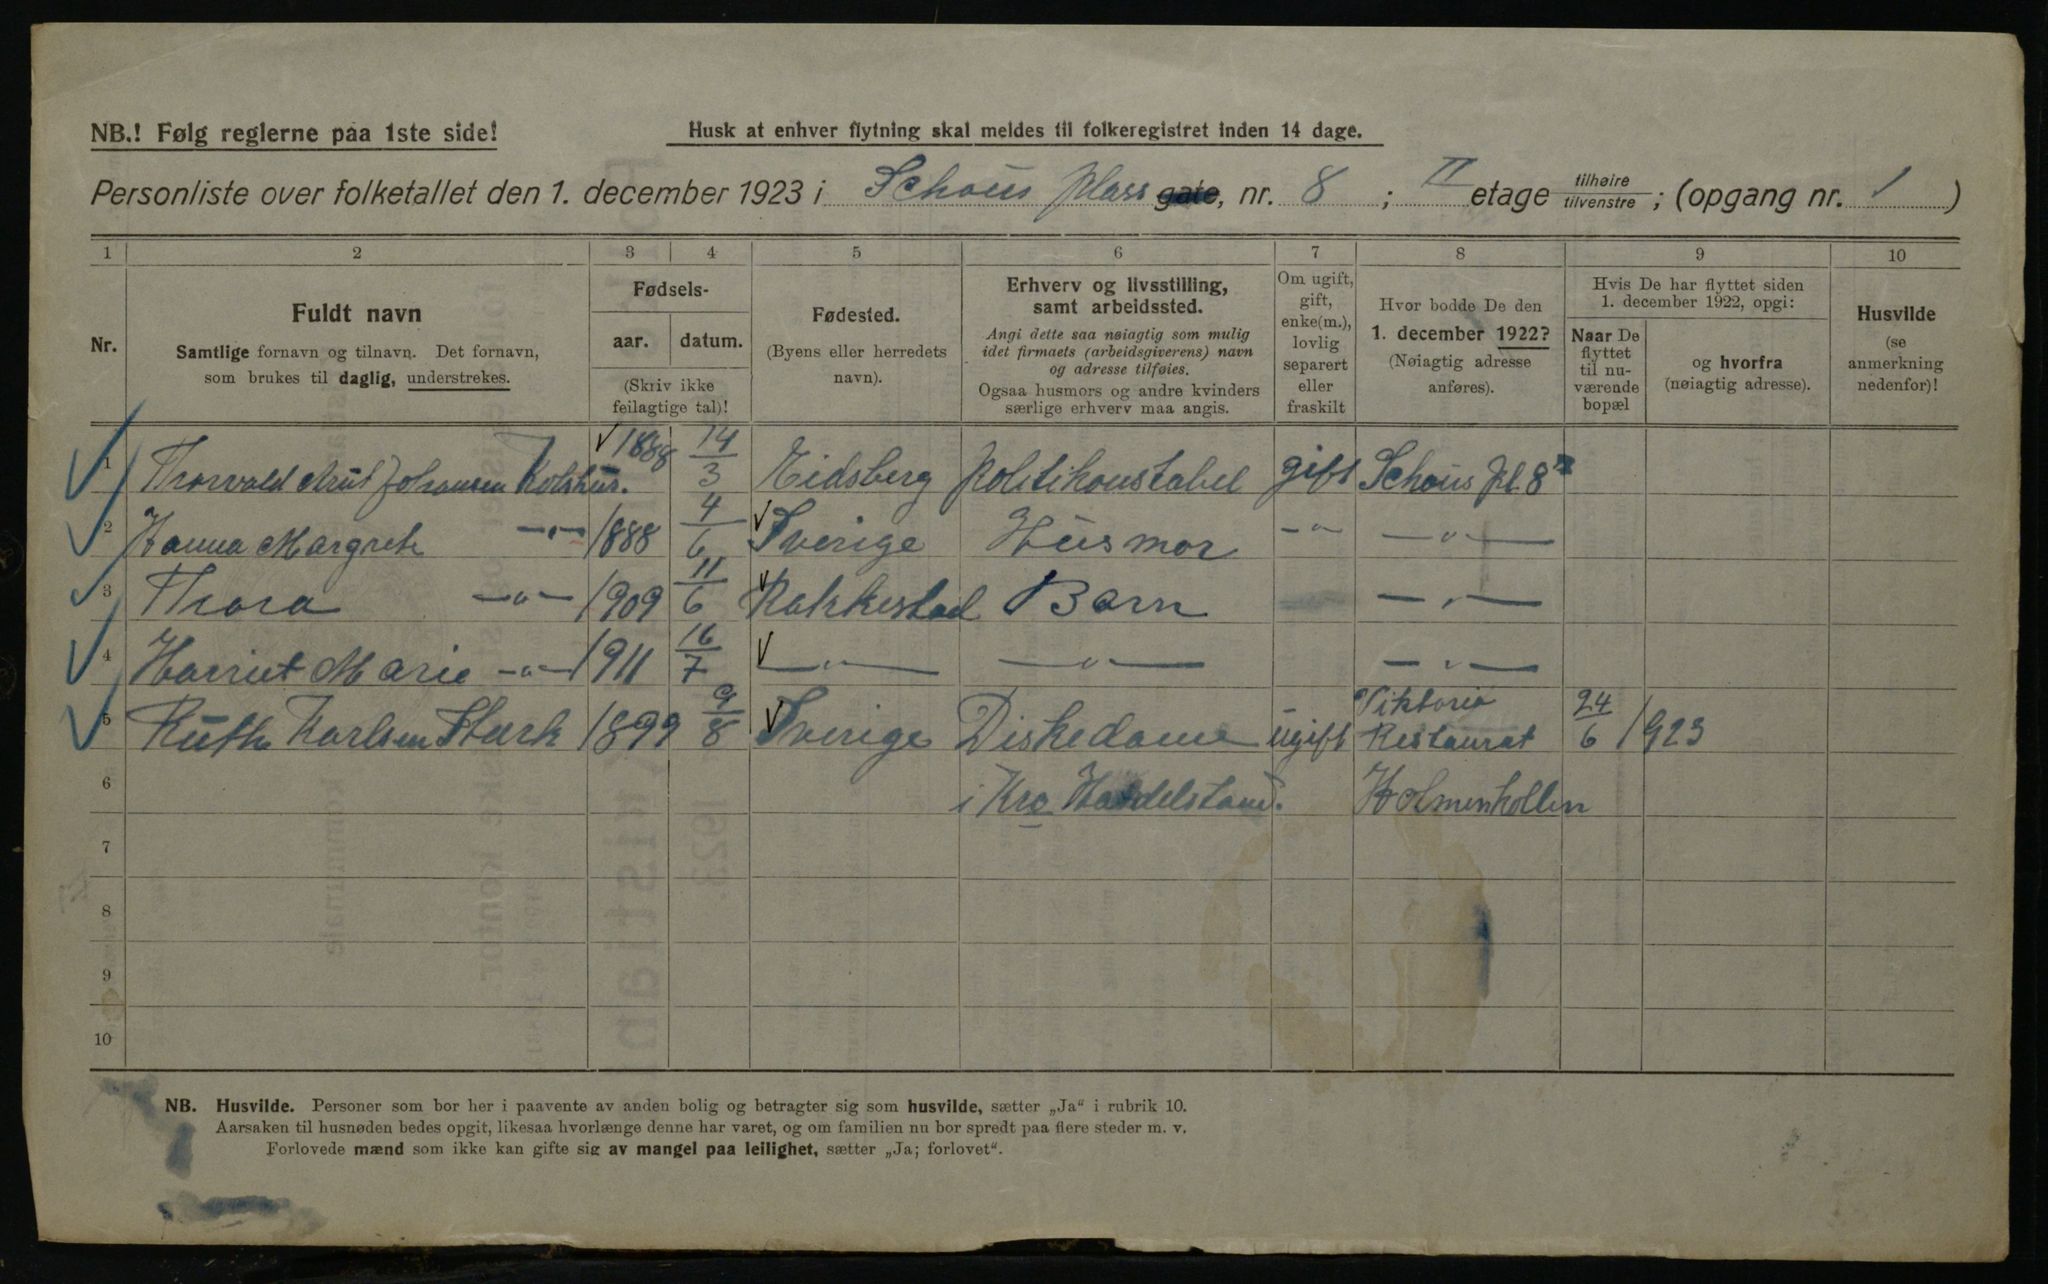 NB.! Følg reglerne paa 1ste side!
Husk at enhver flytning skal meldes til folkeregistret inden 14 dage.
Personliste over folketallet den 1. december 1923 i Schous plass gate, nr. 8; II etage tilhøire tilvenstre; (opgang nr. 1)
1 2 3 4 5 6 7 8 9 10
Nr.
Fuldt navn
Samtlige fornavn og tilnavn. Det fornavn,
som brukes til daglig, understrekes.
Fødsels-
aar. datum.
(Skriv ikke
feilagtige tal)!
Fødested.
(Byens eller herredets
navn).
Erhverv og livsstilling,
samt arbeidssted.
Angi dette saa nøiagtig som mulig
idet firmaets (arbeidsgiverens) navn
og adresse tilføies.
Ogsaa husmors og andre kvinders
særlige erhverv maa angis.
Om ugift,
gift,
enke(m.),
lovlig
separert
eller
fraskilt
Hvor bodde De den
1. december 1922?
(Nøiagtig adresse
anføres).
Hvis De har flyttet siden
1. december 1922, opgi:
Naar De
flyttet
til nu-
værende
bopæl
og hvorfra
(nøiagtig adresse).
Husvilde
(se
anmerkning
nedenfor)!
1 Thorvald Johansen Kolshus. 1888 14/3 Eidsberg Politikonstabel gift Schous pl. 8
2 Hanna Margrete —"— 1888 4/6 Sverige Husmor —"— —"—
3 Thora —"— 1909 11/6 Rakkestad Barn —"—
4 Harriet Marie —"— 1911 16/7 —"— —"— —"—
5 Ruth Karlsen Stark 1899 9/8 Sverige Diskedame ugift Viktoria Restaurat 24/6 1923
6 i Kra Handelstand. Holmenkollen
7
8
9
10
NB. Husvilde. Personer som bor her i paavente av anden bolig og betragter sig som husvilde, sætter „Ja“ i rubrik 10.
Aarsaken til husnøden bedes opgit, likesaa hvorlænge denne har varet, og om familien nu bor spredt paa flere steder m. v.
Forlovede mænd som ikke kan gifte sig av mangel paa leilighet, sætter „Ja; forlovet“.